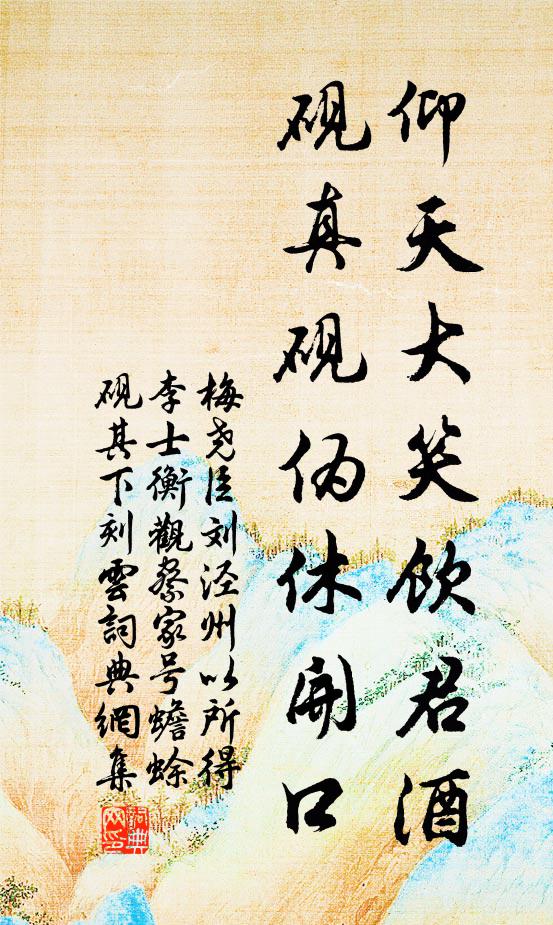 仰天大笑饮君酒
砚真砚伪休开口
梅尧臣刘泾州以所得
李士衡觀察家号蟾蜍
砚其下刻雲詞典網集
詞典
网印